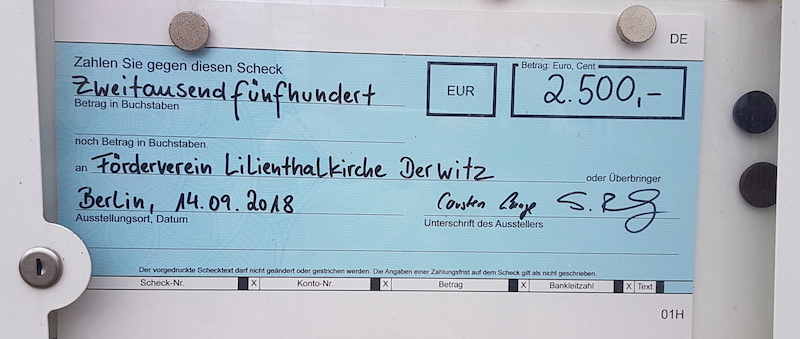 DE
Zahlen Sie gegen diesen Scheck
Betrag: Euro, Cent
Zweitausendfünfhundert
EUR
2.500,-
Betrag in Buchstaben
noch Betrag in Buchstaben
an Förderverein Lilienthalkirche Derwitz oder Überbringer
Berlin, 14.09.2018 Carsten S.
Ausstellungsort, Datum
Unterschrift des Ausstellers
Der vorgedruckte Schecktext darf nicht geändert oder gestrichen werden. Die Angaben einer Zahlungsfrist auf dem Scheck gilt als nicht geschrieben.
Scheck-Nr. X Konto-Nr. X Betrag X Bankleitzahl X Text
01H